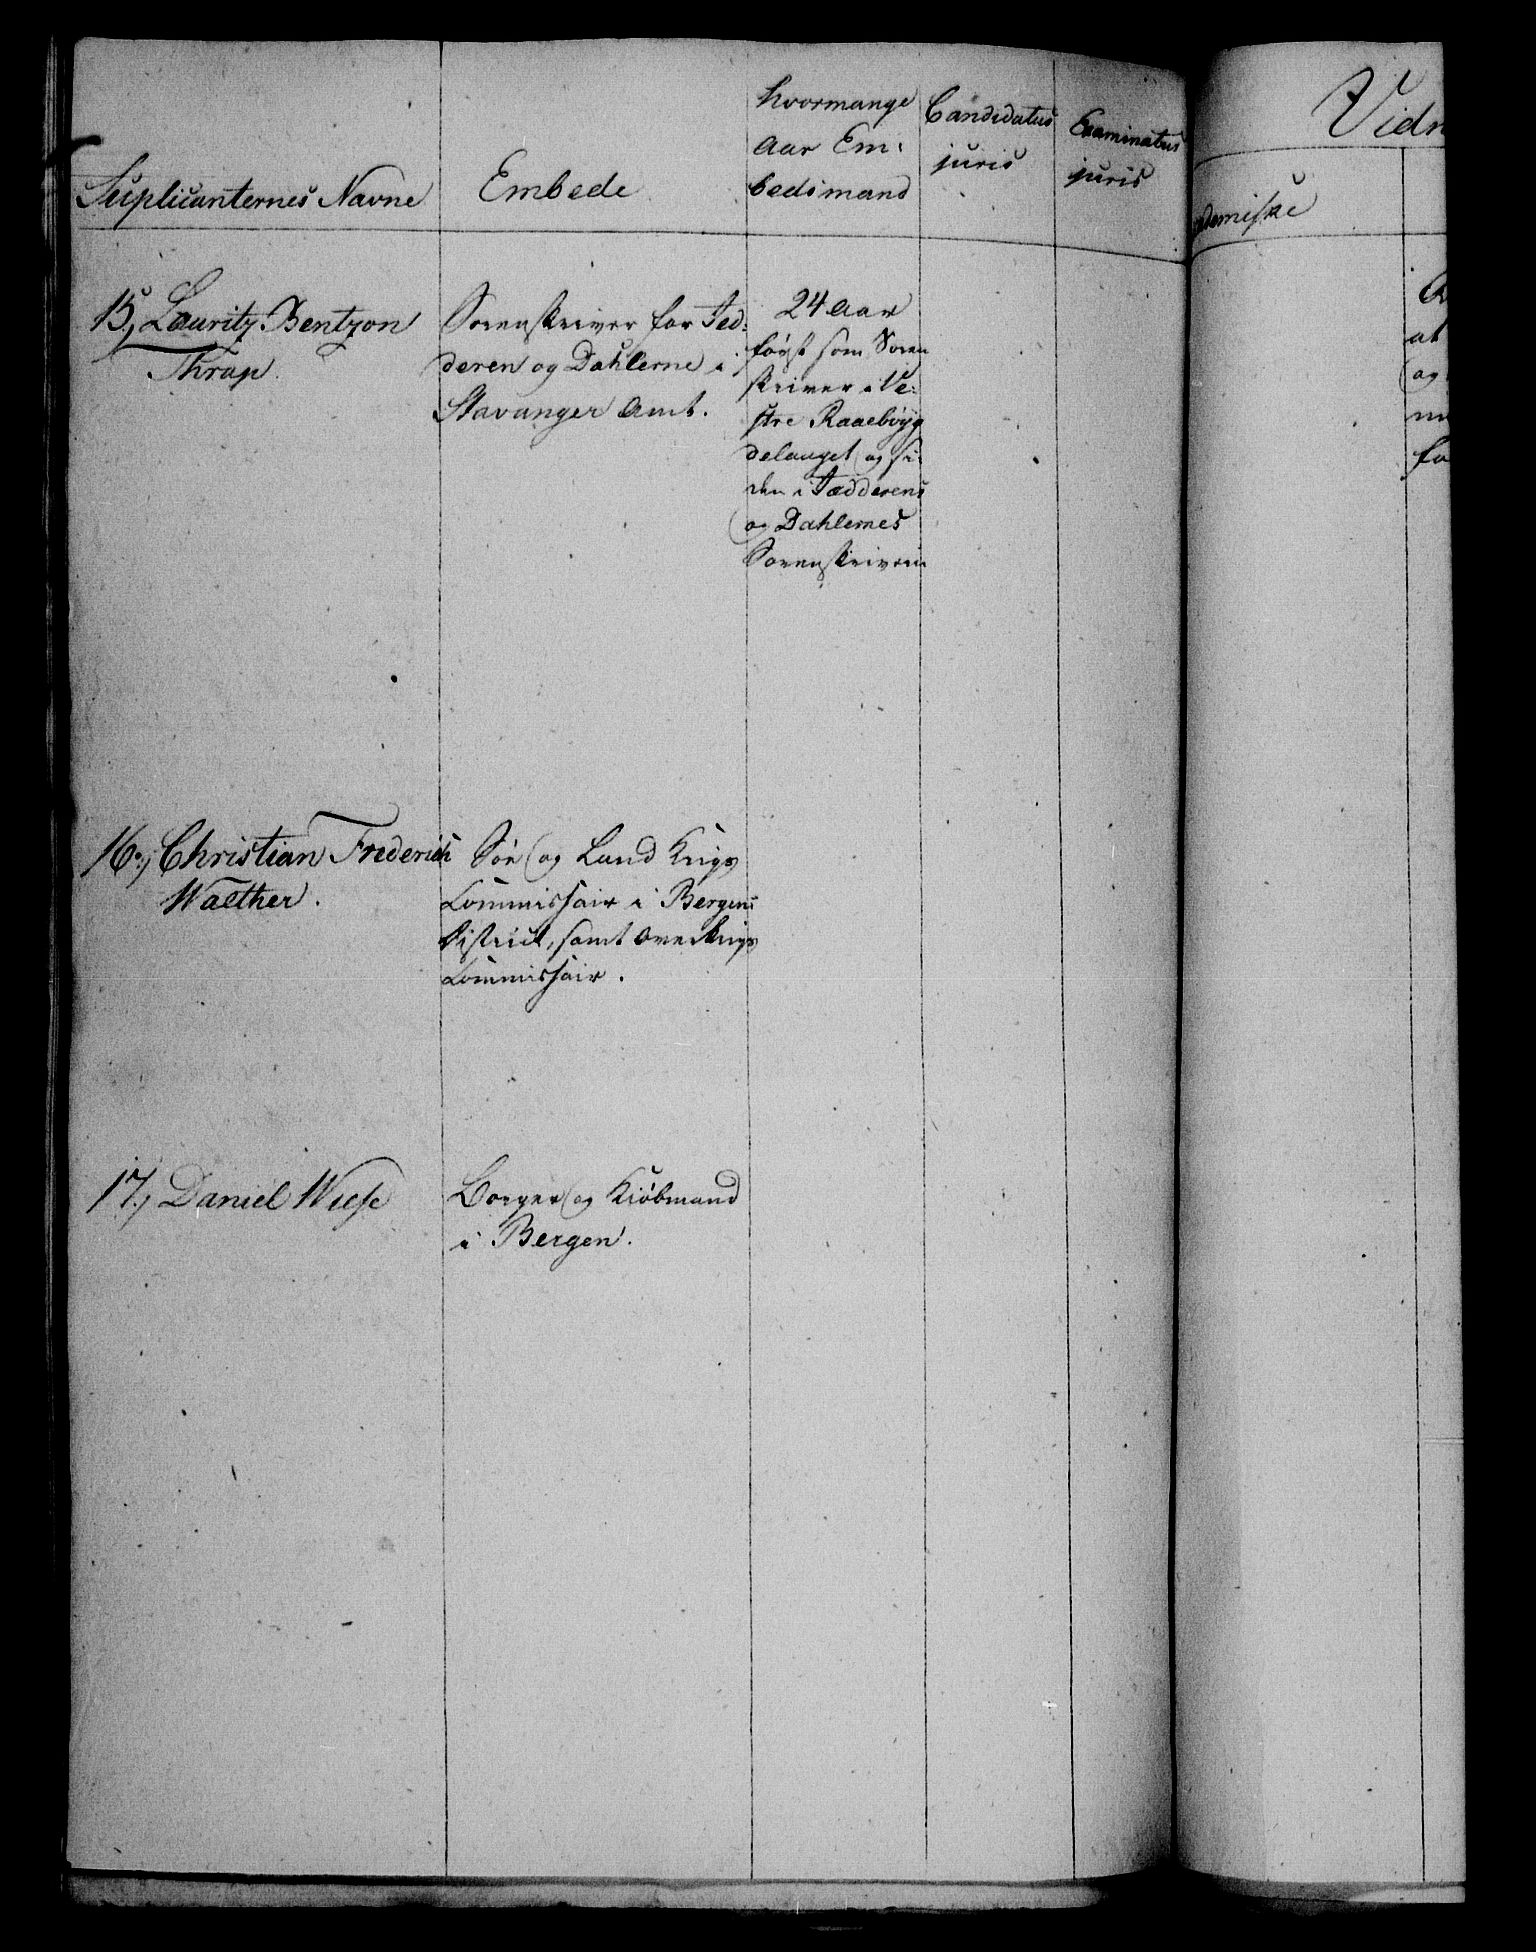 Suplicanternes Navne
Embede
hvormange
Aar Em:
bedsmand
Candidatus
juris
Examinatus
juris
Vidn
demiske
15, Lauritz Bentzon
Thrap.
Sorenskriver for Jed:
deren og Dahlerne i
Stavanger Amt.
24 Aar
først som Soren
skriver i Ve:
stre Raaebøyg
delauget og si
den i Jædderens
og Dahlernes
Sorenskriveri
at
og
16, Christian Frederich
Walther.
Søe og Land Krigs
Commissair i Bergens
District, samt Overkrigs
Commissair.
17, Daniel Wiese
Borger og Kiøbmand
i Bergen.